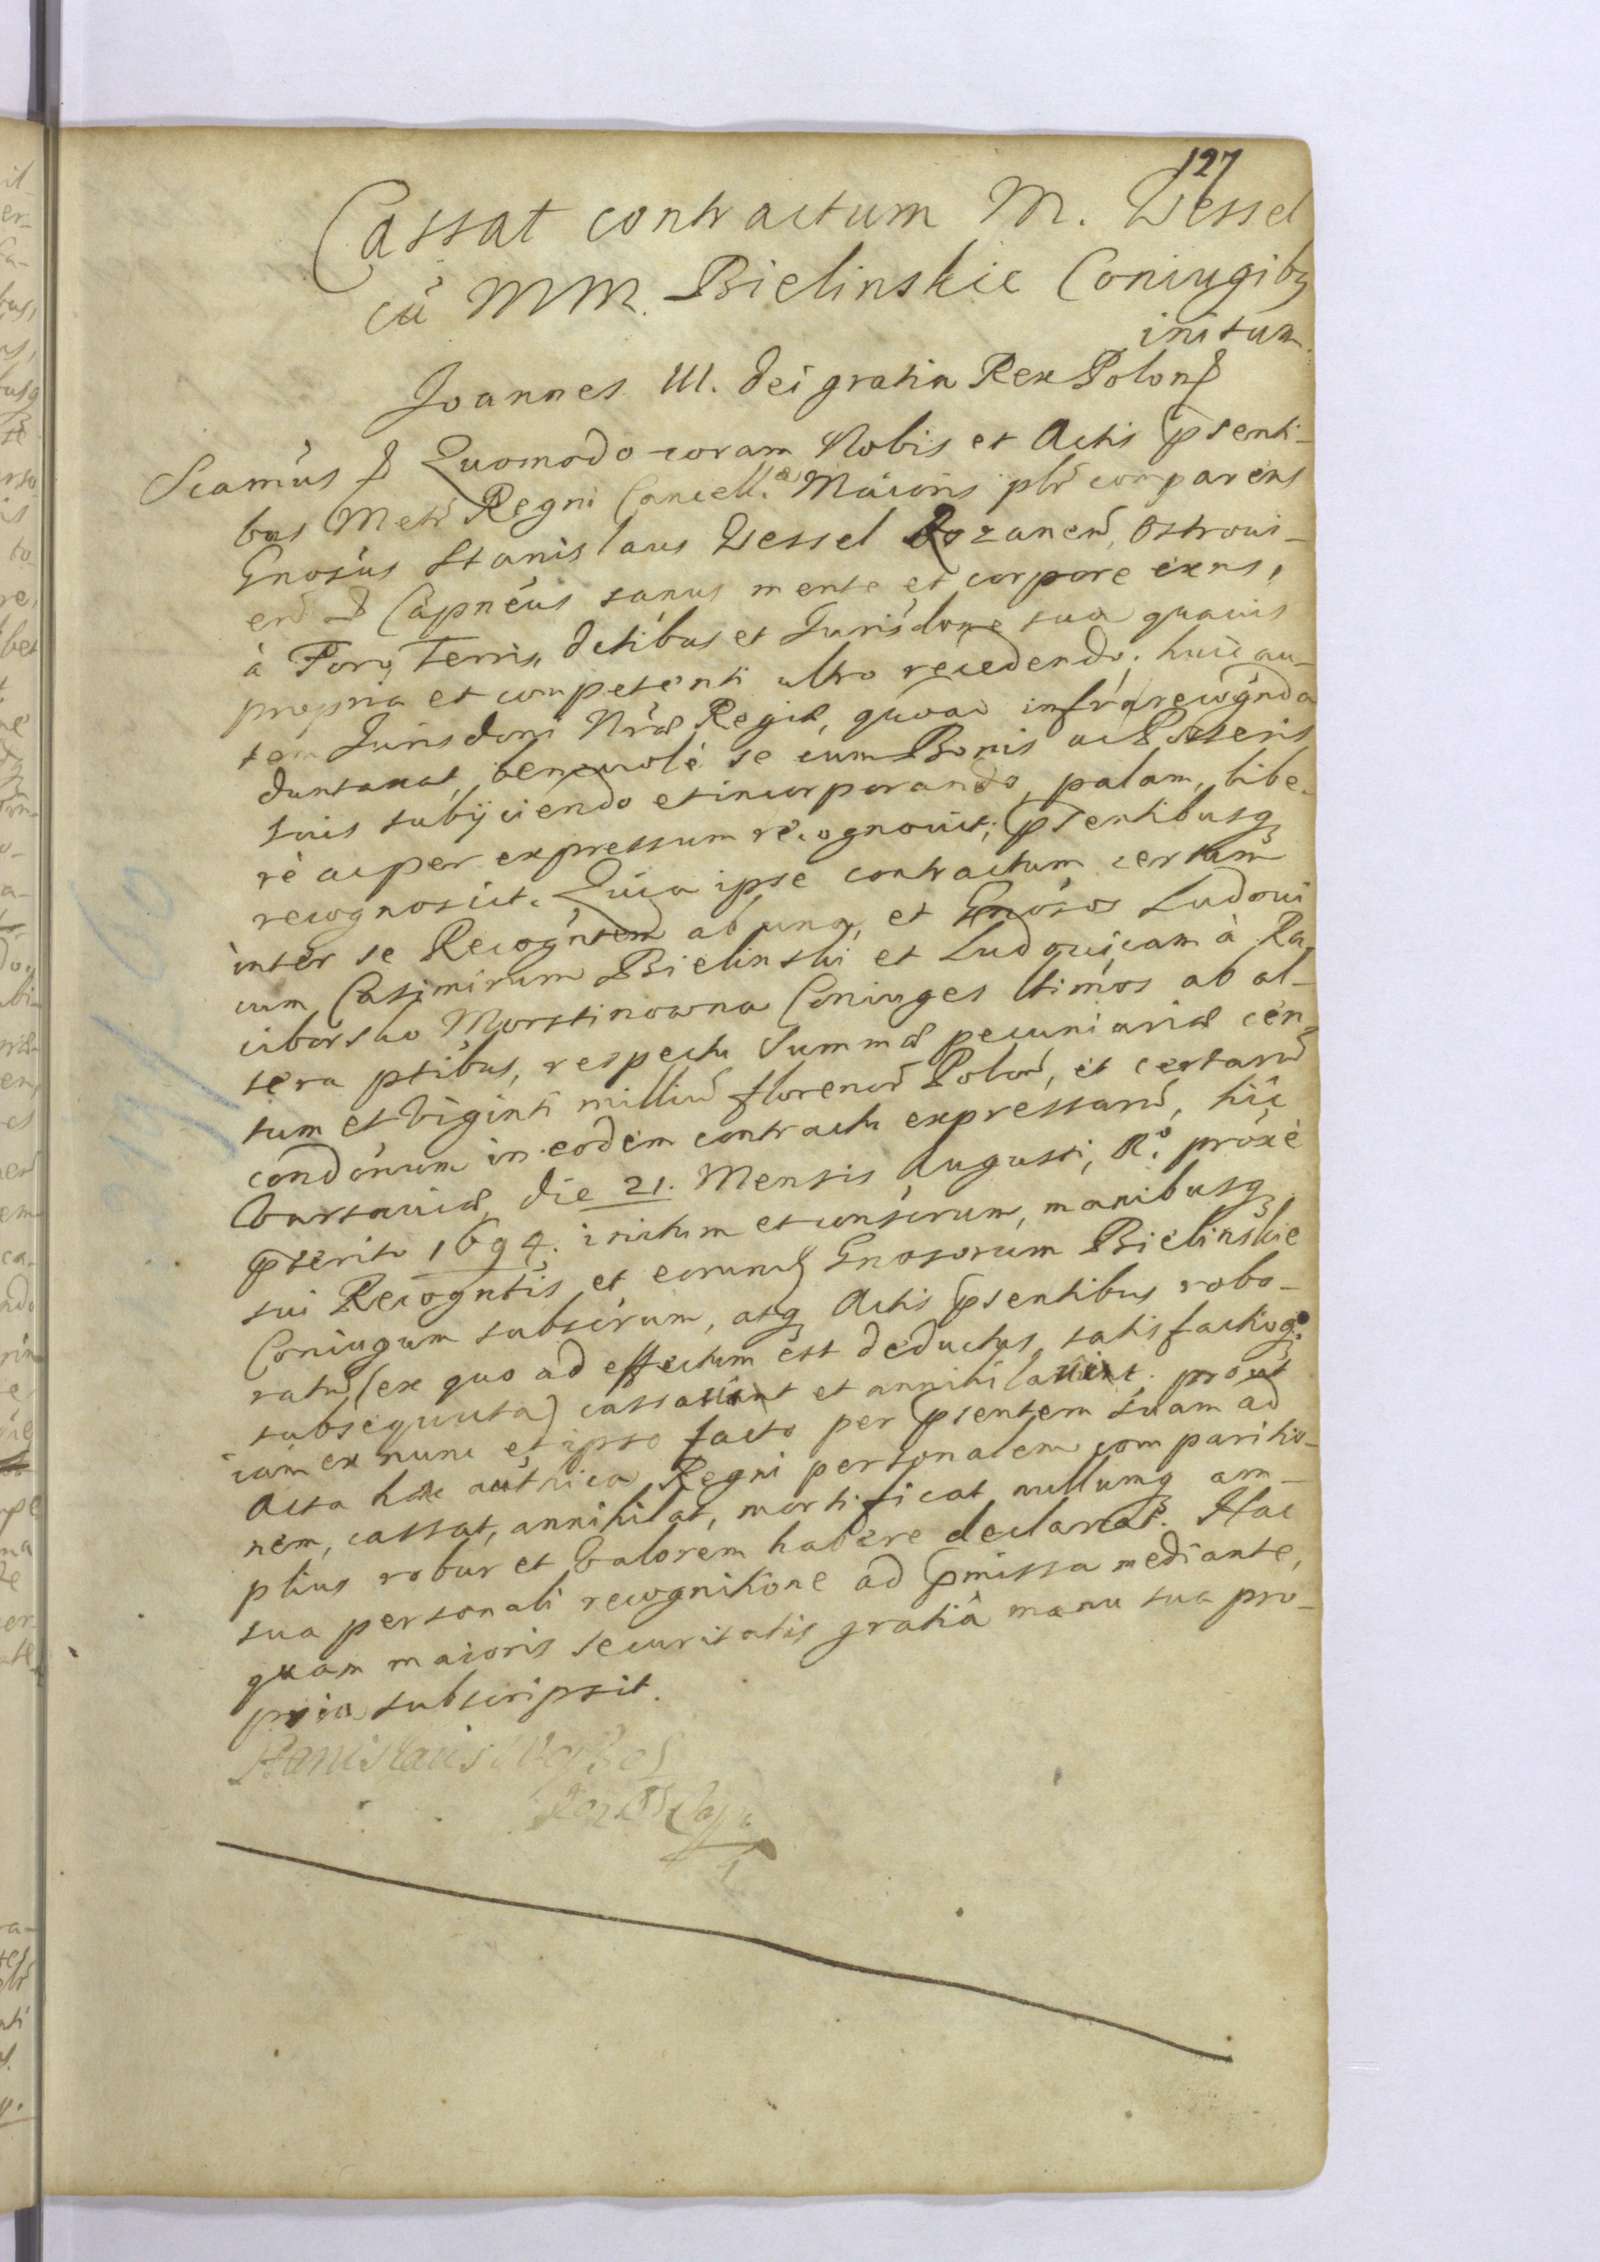 127
Cassat contractum M. Wessel
cũ MM. Bielinskie Coniugibq
initum.
Joannes III. dei gratia Rex Polon
Scamus Quomodo coram Nobis et Actis pñti-
bus Metr Regni Cancellae Maioris plr comparens
Gnosus Stanislaus Wessel Rozanen, Ostrovi-
en Capneus sanus mente et corpore exns,
à Foro, Terris, dctibus et Jurisdone sua quavis
propria et competenti ultro recedendo, huic au-
tem Jurisdoni Nrae Regiae, quoad infrarecognda
duntaxat, benevolè se cum Bonis ac Posteris
suis subijciendo et incorporando, palam, libe-
rè ac per expressum recognovit, psentibusq
recognoscit. Quia ipse contractum certum
inter se Recogntem ab una, et Gnosos Ludovi
cum Casimirum Bielinski et Ludovicam à Ra,
ciborsko Morstinowna Coniuges ltimos ab al-
tera ptibus, respectu Summae pecuniariae cen
tum et Viginti milliu florenor Polon, et certaru
condonum in eodem contractu expressaru, hic
Varsaviae, die 21. Mensis Augusti, A.º proxè
pterito 1694. initum et conscrum, manibusq
sui Recogntis, et eorund Gnosorum Bielinskie
Coniugum subscrum, atq Actis psentibus robo-
ratu, (ex quo ad effectum est deductus, satisfactioq
subsequuta) cassavit et annihilavit. prout
iam ex nunc et ipso facto per psentem suam ad
Acta haec autnica Regni personalem comparitio-
nem, cassat, annihilat, mortificat nullumq am-
plius robur et Valorem habere declarat. Hac
sua personali recognitione ad pmissa mediante,
quam maioris securitatis gratiâ manu sua pro-
pria subscripsit.
Stanislaus Wessel